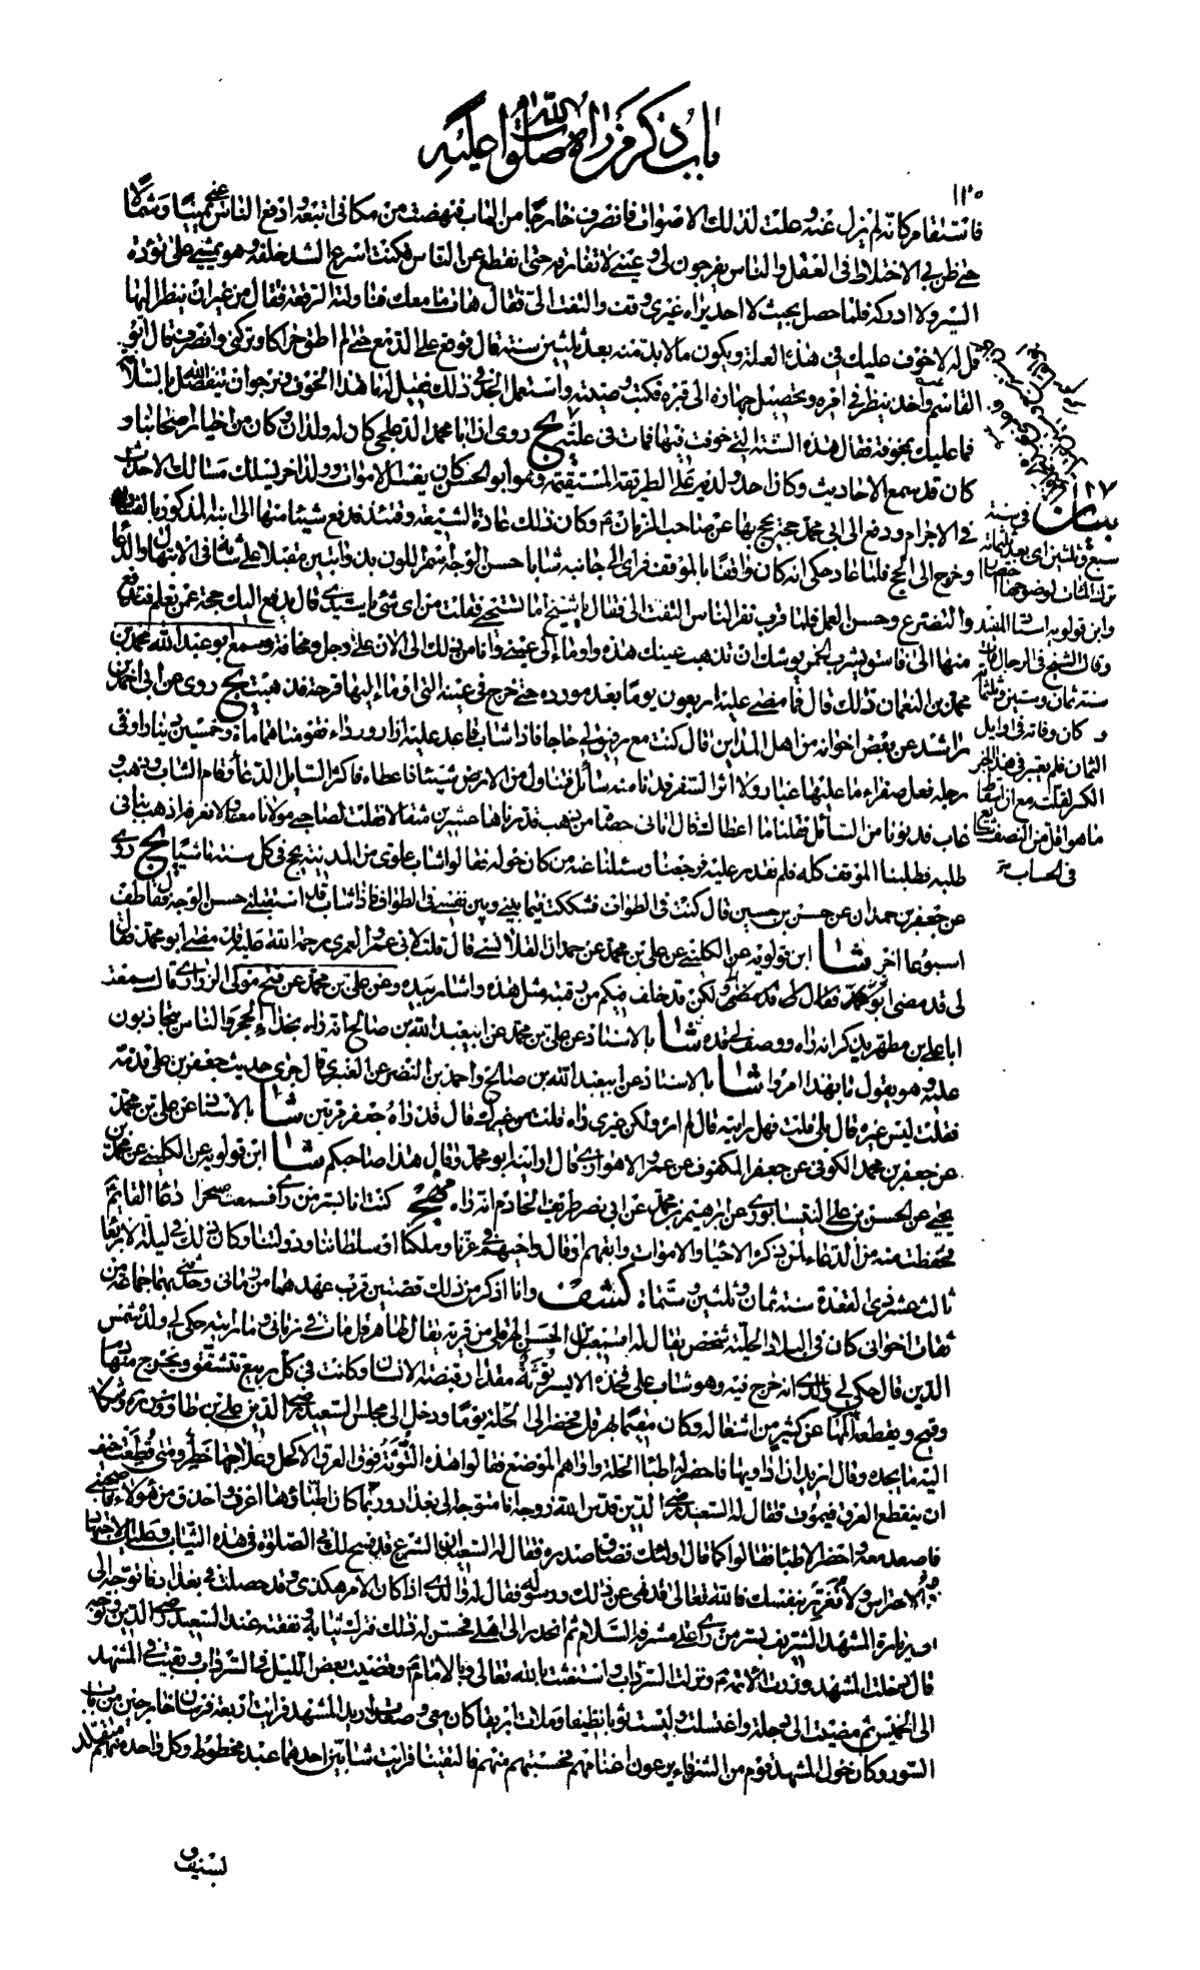 باب ذكر من راه صلوات الله عليه
١٢٠
فاستقام كانه لم يزل عنه وعلت لذلك الاصوات فانصرف خارجا من الباب فنهضت من مكانى اتبعه وادفع الناس عنى يمينا وشمالا
حتى ظن بى الاختلاط فى العقل والناس يفرجون لى وعينى لا تفارقه حتى انقطع عن الناس فكنت اسرع الشد خلفه وهو يمشى على تؤدة
السير ولا ادركه فلما حصل بحيث لا احد يراه غيرى وقف والتفت الى فقال هات ما معك فناولته الرقعة فقال من غير ان ينظر اليها
قل له لا خوف عليك فى هذه العلة ويكون ما لا بد منه بعد ثلثين سنة قال فوقع على الدمع حتى لم اطق حراكا وتركنى وانصرف قال ابو
القاسم واخذ ينظر فى امره وتحصيل جهازه الى قبره فكتب وصيته واستعمل الجد فى ذلك فقيل له ما هذا الخوف ونرجو ان يتفضل الله بالسلامة
فما عليك بمخوفة فقال هذه السنة التى خوفت فيها فمات فى علته يج روى ان ابا محمد الدعلجى كان له ولدان وكان من خيار اصحابنا و
كان قد سمع الاحاديث وكان احد ولديه على الطريقة المستقيمة وهو ابو الحسن كان يغسل الاموات وولد اخر يسلك مسالك الاحداث
فى الاجرام ودفع الى ابى محمد حجة يحج بها عن صاحب الزمان م وكان ذلك عادة الشيعة وقتئذ فدفع شيئا منها الى ابنه المذكور بالفساد
وخرج الى الحج فلما عاد حكى انه كان واقفا بالموقف فراى الى جانبه شابا حسن الوجه اسمر اللون بذؤابتين مقبلا على شانه فى الابتهال والدعا
والتضرع وحسن العمل فلما قرب نفر الناس التفت الى فقال يا شيخ اما تستحيى فقلت من اى شئ يا سيدى قال يدفع اليك حجة عمن تعلم فتدفع
منها الى فاسق يشرب الخمر يوشك ان تذهب عينك هذه واوماء الى عينى وانا من ذلك الى الان على وجل ومخافة وسمع ابو عبد الله محمد بن
محمد بن النعمان ذلك قال فما مضى عليه اربعون يوما بعد مورده حتى خرج فى عينه التى اوماء اليها قرحة فذهبت يج روى عن ابى احمد بن
راشد عن بعض اخوانه من اهل المداين قال كنت مع رفيق لى حاجا فاذا شاب قاعد عليه ازار ورداء فقومناهما مأة وخمسين دينارا وفى
رجله نعل صفراء ما عليها غبار ولا اثر السفر فدنا منه سائل فتناول من الارض شيئا فاعطاه فاكثر السايل الدعاء وقام الشاب وذهب و
غاب فدنونا من السائل فقلنا ما اعطاك قال اتانى حصاة من ذهب قدرناها عشرين مثقالا فقلت لصاحبى مولانا معنا ولا نعرفه اذهب بنا فى
طلبه فطلبنا الموقف كله فلم نقدر عليه فرجعنا وسئلنا عنه من كان حوله فقالوا شاب علوى من المدينة يحج فى كل سنة ماشيا يج روى
عن جعفر بن حمدان عن حسن بن حسين قال كنت فى الطواف فشككت فيما بينى وبين نفسى فى الطواف فاذا شاب قد استقبلنى حسن الوجه فقال طف
اسبوعا اخر شا ابن قولويه عن الكلينى عن على بن محمد عن حمدان القلانسى قال قلت لابى عمرو العمرى رحمة الله عليه قد مضى ابو محمد فقال
لى قد مضى ابو محمد ولكن قد خلف فيكم من رقبته مثل هذه واشار بيده وعن على بن محمد عن فتح مولى الزرارى قال سمعت
ابا على بن مطهر يذكر انه راه ووصف لى قده شا بالاسناد عن على بن محمد عن ابيعبد الله بن صالح انه راه بحذاء الحجر والناس يتجاذبون
عليه وهو يقول ما بهذا امروا شا بالاسناد عن ابيعبد الله بن صالح واحمد بن النضر عن القنبرى قال جرى حديث جعفر بن على فذمه
فقلت ليس غيره قال بلى قلت فهل رايته قال لم اره ولكن غيرى راه قلت من غيرك قال قد راه جعفر مرتين شا بالاسناد عن على بن محمد
عن جعفر بن محمد الكوفى عن جعفر المكفوف عن عمرو الاهوازى قال ارانيه ابو محمد وقال هذا صاحبكم شا ابن قولويه عن الكلينى عن محمد بن
يحيى عن الحسن بن على النيسابورى عن ابرهيم بن محمد عن ابى نصر طريف الخادم انه راه مهج كنت انا بسر من راى فسمعت سحرا دعا القائم
فحفظت منه من الدعاء لمن ذكره الاحياء والاموات وابقهم او قال واحيهم فى عزنا وملكنا او سلطاننا ودولتنا وكان ذلك فى ليلة الاربعا
ثالث عشر ذى القعدة سنة ثمان وثلثين وستمأة كشف وانا اذكر من ذلك قصتين قرب عهدهما من زمانى وحدثنى بهما جماعة من
ثقات اخوانى كان فى البلاد الحلية شخص يقال له اسمعيل بن الحسن الهرقلى من قرية يقال لها هرقل مات فى زمانى وما رايته حكى لى ولده شمس
الدين قال حكى لى والدى انه خرج فيه وهو شاب على فخذه الايسر توثة مقدار قبضة الانسان وكانت فى كل ربيع تتشقق ويخرج منها دم
وقيح ويقطعه المها عن كثير من اشغاله وكان مقيما بهرقل فحضر الى الحلة يوما ودخل الى مجلس السعيد رضى الدين على بن طاووس ره وشكا
اليه ما يجده وقال اريد ان اداويها فاحضر له اطبا الحلة واراهم الموضع فقالوا هذه التوثة فوق العرق الاكحل وعلاجها خطر ومتى قطعت خيف
ان ينقطع العرق فيموت فقال له السعيد رضى الدين قدس الله روحه انا متوجه الى بغداد وربما كان اطباؤها اعرف واحذق من هؤلاء فاصحبنى
فاصعد معه واحضر الاطبا فقالوا كما قال اولئك فضاق صدره فقال له السعيد ان الشرع قد فسح لك فى الصلوة فى هذه الثياب وعليك الاجتهاد
فى الاحتراس ولا تغرر بنفسك فالله تعالى قد نهى عن ذلك ورسوله فقال له والدى اذا كان الامر هكذى وقد حصلت فى بغداد فاتوجه الى
زيارة المشهد الشريف بسر من راى على مشرفه السلام ثم انحدر الى اهلى فحسن له ذلك فترك ثيابه ونفقته عند السعيد رضى الدين وتوجه
قال دخلت المشهد وزرت الائمة م ونزلت السرداب واستغثت بالله تعالى وبالامام م وقضيت بعض الليل فى السرداب وبقيت فى المشهد
الى الخميس ثم مضيت الى دجلة واغتسلت ولبست ثوبا نظيفا وملات ابريقا كان معى وصعدت اريد المشهد فرايت اربعة فرسان خارجين من باب
السور وكان حول المشهد قوم من الشرفاء يرعون اغنامهم فحسبتهم منهم فالتقينا فرايت شابين احدهما عبد مخطوط وكل واحد منهم متقلد
بسيف و
١٢٧
بيان فى سنة
سبع وثلثين اى بعد ثلثمائة
ترك المئات لوضوحها اختصارا
وابن قولويه استاد المفيد
وقال الشيخ فى الرجال مات
سنة ثمان وستين وثلثمأة
وكان وفاته فى اوايل
الثمان فلم يعتبر فى هذا الخبر
الكسر لقلته مع ان اسقاط
ما هو اقل من النصف شايع
فى الحساب